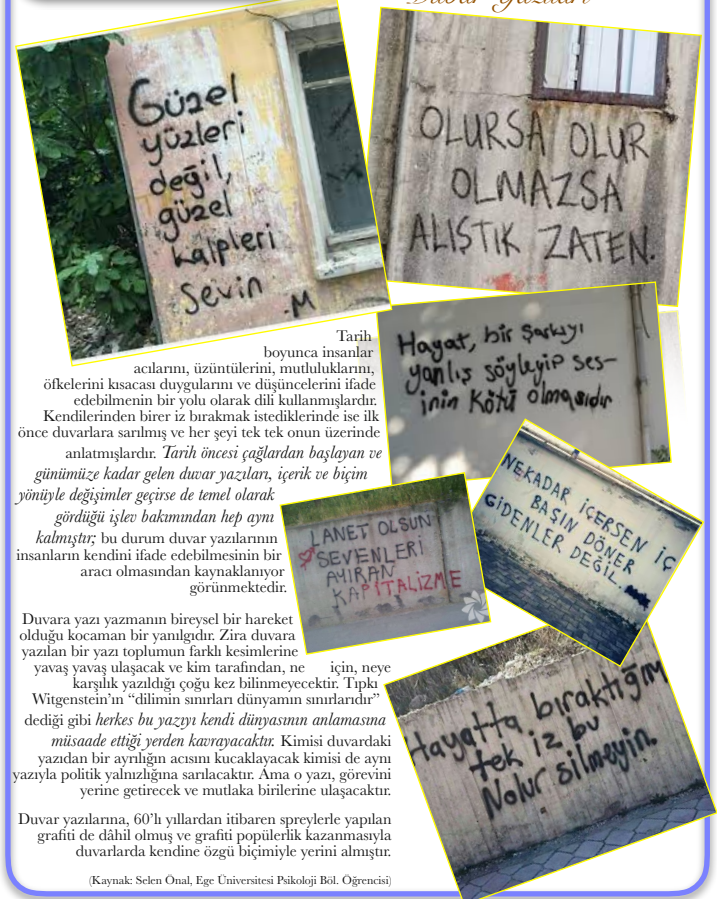 Duvar Yazıları
Güzel
yüzleri
değil,
güzel
kalpleri
Sevin
.M
OLURSA OLUR
OLMAZSA
ALIŞTIK ZATEN.
Hayat, bir Şarkıyı
yanlış söyleyip ses-
inin Kötü olmasıdır
NEKADAR İÇERSEN İÇ
BAŞIN DÖNER
GİDENLER DEĞİL.
LANET OLSUN
SEVENLERİ
AYIRAN
KAPİTALİZME
Hayatta bıraktığım
tek iz bu
Nolur silmeyin.
Tarih
boyunca insanlar
acılarını, üzüntülerini, mutluluklarını,
öfkelerini kısacası duygularını ve düşüncelerini ifade
edebilmenin bir yolu olarak dili kullanmışlardır.
Kendilerinden birer iz bırakmak istediklerinde ise ilk
önce duvarlara sarılmış ve her şeyi tek tek onun üzerinde
anlatmışlardır. Tarih öncesi çağlardan başlayan ve
günümüze kadar gelen duvar yazıları, içerik ve biçim
yönüyle değişimler geçirse de temel olarak
gördüğü işlev bakımından hep aynı
kalmıştır; bu durum duvar yazılarının
insanların kendini ifade edebilmesinin bir
aracı olmasından kaynaklanıyor
görünmektedir.
Duvara yazı yazmanın bireysel bir hareket
olduğu kocaman bir yanılgıdır. Zira duvara
yazılan bir yazı toplumun farklı kesimlerine
yavaş yavaş ulaşacak ve kim tarafından, ne için, neye
karşılık yazıldığı çoğu kez bilinmeyecektir. Tıpkı
Witgenstein’ın “dilimin sınırları dünyamın sınırlarıdır”
dediği gibi herkes bu yazıyı kendi dünyasının anlamasına
müsaade ettiği yerden kavrayacaktır. Kimisi duvardaki
yazıdan bir ayrılığın acısını kucaklayacak kimisi de aynı
yazıyla politik yalnızlığına sarılacaktır. Ama o yazı, görevini
yerine getirecek ve mutlaka birilerine ulaşacaktır.
Duvar yazılarına, 60’lı yıllardan itibaren spreylerle yapılan
grafiti de dâhil olmuş ve grafiti popülerlik kazanmasıyla
duvarlarda kendine özgü biçimiyle yerini almıştır.
(Kaynak: Selen Önal, Ege Üniversitesi Psikoloji Böl. Öğrencisi)